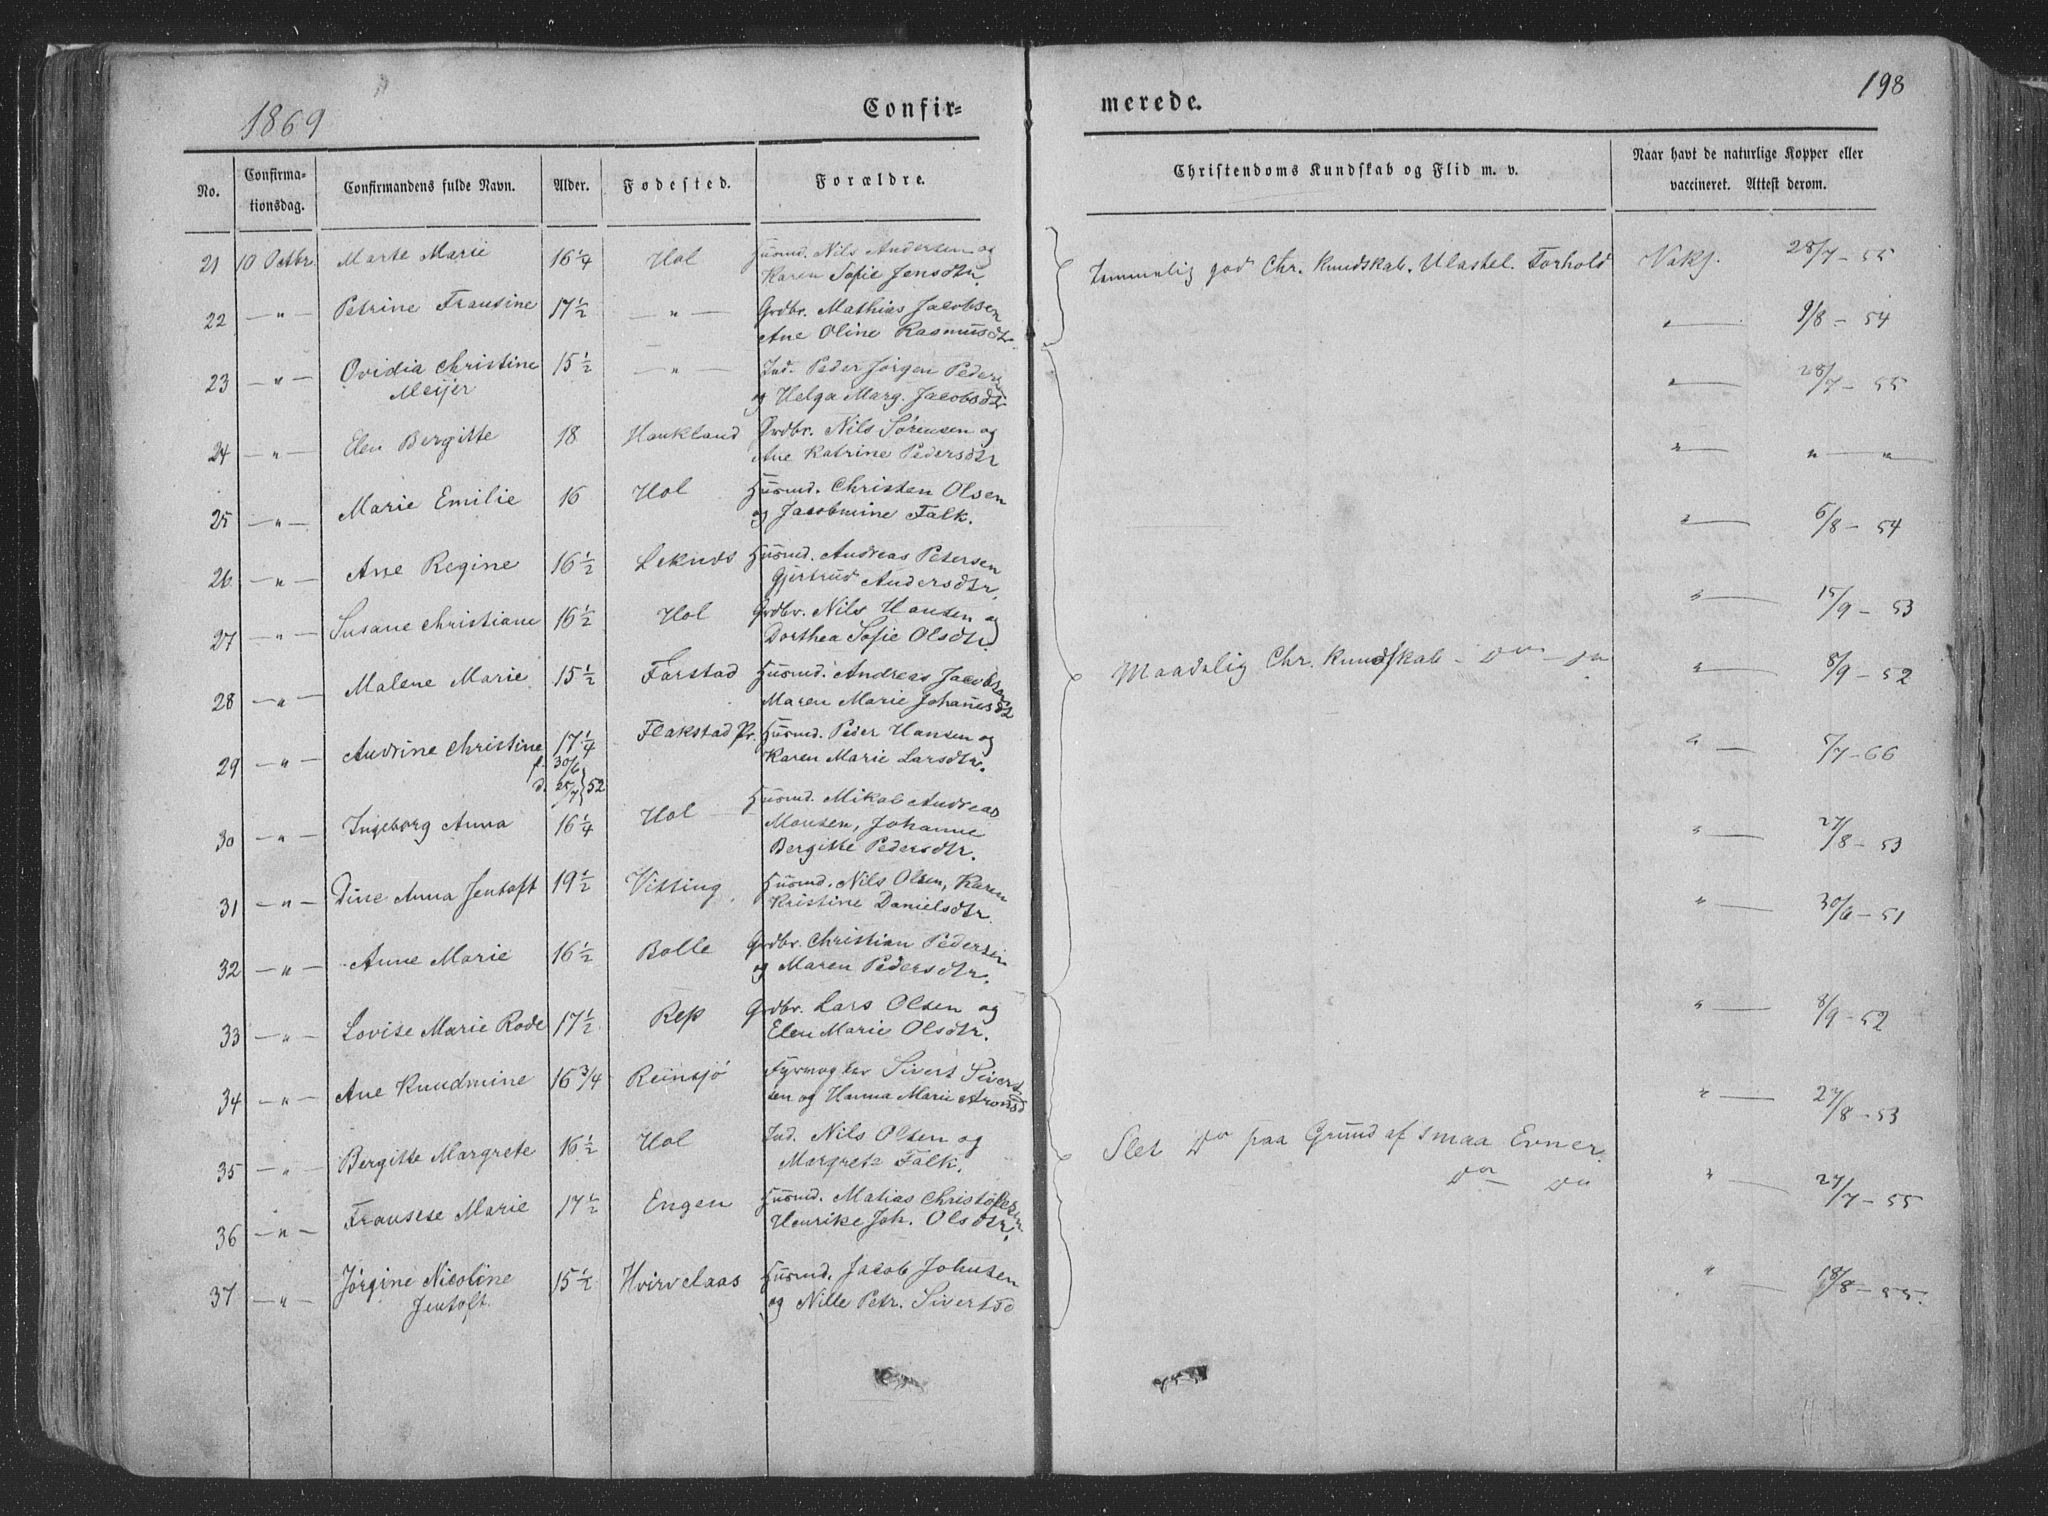 198
1869
Confir-
merede.
No.
Confirma-
tionsdag.
Confirmandens fulde Navn.
Alder.
Fødested.
Forældre.
Christendoms Kundskab og Flid m. v.
Naar havt de naturlige Kopper eller
vaccineret. Attest derom.
21 10 Octbr. Marte Marie 16 1/4 Hol Husmd. Nils Andersen og
Karen Sofie Jensdtr. Temmelig god Chr. kundskab. Ulastel. Forhold Vaks. 28/7 - 55
22 — " — Petrine Frantine 17 1/2 — " — Grdbr. Mathias Jacobsen
Ane Oline Rasmusdtr. " — 9/8 - 54
23 — " — Ovidia Christine 15 1/2 — " — Ind. Peder Jørgen Peders
Meijer og Helga Marg. Jacobsdtr " — 28/7 - 55
24 — " — Elen Bergitte 18 Haukland Grdbr. Nils Sørensen og
Ane Katrine Pedersdtr " — " — "
25 — " — Marie Emilie 16 Hol Husmd. Christen Olsen
og Jacobmine Falk. " — 6/8 - 54
26 — " — Ane Regine 16 1/2 Leknds Husmd. Andreas Petersen
Gjertrud Andersdtr. " — 15/9 - 53
27 — " — Susane Christiane 16 1/2 Hol Grdbr. Nils Hansen og
Dorthea Sofie Olsdtr.
Maadelig Chr. kundskab - Do - Do
28 — " — Malene Marie 15 1/2 Farstad Husmd. Andreas Jacobsen
Maren Marie Johansdt " — 8/9 - 52
29 — " — Andrine Christine 17 1/4 Flakstad Pr. Husmd. Peder Hansen og
Karen Marie Larsdtr. " — 5/7 - 66
f. 30/6
d. 25/7 } 52
30 — " — Ingeborg Anna 16 1/4 Hol Husmd. Mikal Andreas
Monsen, Johanne
Bergitte Pedersdtr. " — 27/8 - 53
31 — " — Dine Anna Jentoft 19 1/2 Vitting Husmd. Nils Olsen, Karen
Kristine Danielsdtr. " — 30/6 - 51
32 — " — Anne Marie 16 1/2 Bolle Grdbr. Christian Pedersen
og Maren Pedersdtr.
33 — " — Lovise Marie Rode 17 1/2 Rep Grdbr. Lars Olsen og
Elen Marie Olsdtr. " — 8/9 - 52
34 — " — Ane Knudmine 16 3/4 Reinsjö Fyrvogter Sivert Sivert
sen og Hanna Marie Aronsd " — 27/8 - 53
35 — " — Bergitte Margrete 16 1/2 Hol Ind. Nils Olsen og
Margrete Falk. Slet Do paa Grund af smaa Evner.
Do - Do " — 27/7 - 55
36 — " — Fransese Marie 17 1/2 Engen Husmd. Matias Christofersen
Henrike Joh. Olsdtr.
37 — " — Jørgine Nicoline 15 1/2 Hvirvelaas Husmd. Jacob Johnsen
Jentoft. og Nille Petr. Sivertsd " — 18/8 - 55.